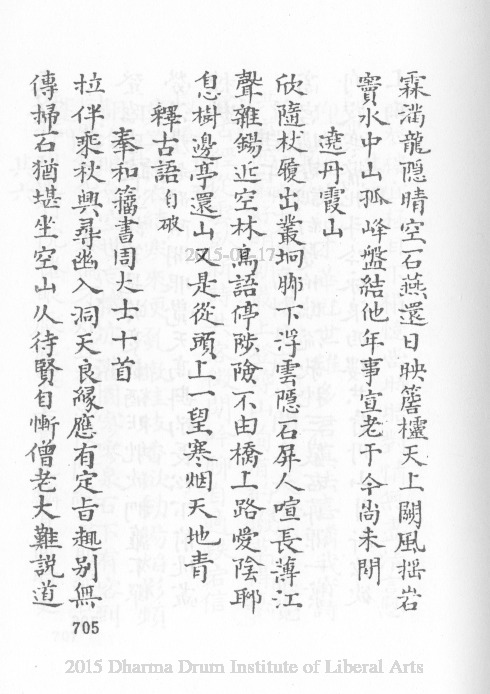 霖滿龍隱晴空石燕還日映簷櫳天上闕風搖岩
竇水中山孤峰盤結他年事宣老于今尚未閒
遶丹霞山
欣隨杖履出叢坰脚下浮雲隱石屏人喧長薄江
聲雜錫近空林鳥語停陟險不由橋上路愛陰聊
息樹邊亭還山又是從頭上一望寒烟天地青
釋古語自破
奉和籀書周大士十首
拉伴乘秋興尋幽入洞天良緣應有定旨趣別無
傳掃石猶堪坐空山从待賢自慚僧老大難説道
705
2015 Dharma Drum Institute of Liberal Arts